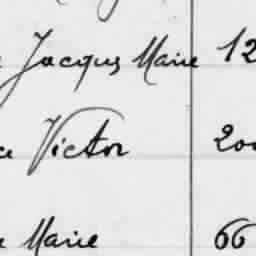 Jacques Marie 12
Victor 200
Marie 66